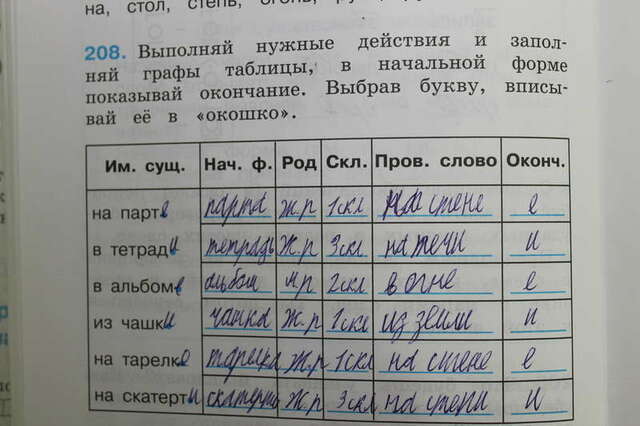 на, стол, степь, огонь,
208. Выполняй нужные действия и запол-
няй графы таблицы, в начальной форме
показывай окончание. Выбрав букву, вписы-
вай её в «окошко».
Им. сущ. Нач. ф. Род Скл. Пров. слово Оконч.
на парте парта ж.р 1скл на стене е
в тетради тетрадь ж.р 3скл на печи и
в альбоме альбом мр 2скл в огне е
из чашки чашка ж.р 1скл из земли и
на тарелке тарелка ж.р 1скл на стене е
на скатерти скатерть ж.р 3скл на степи и